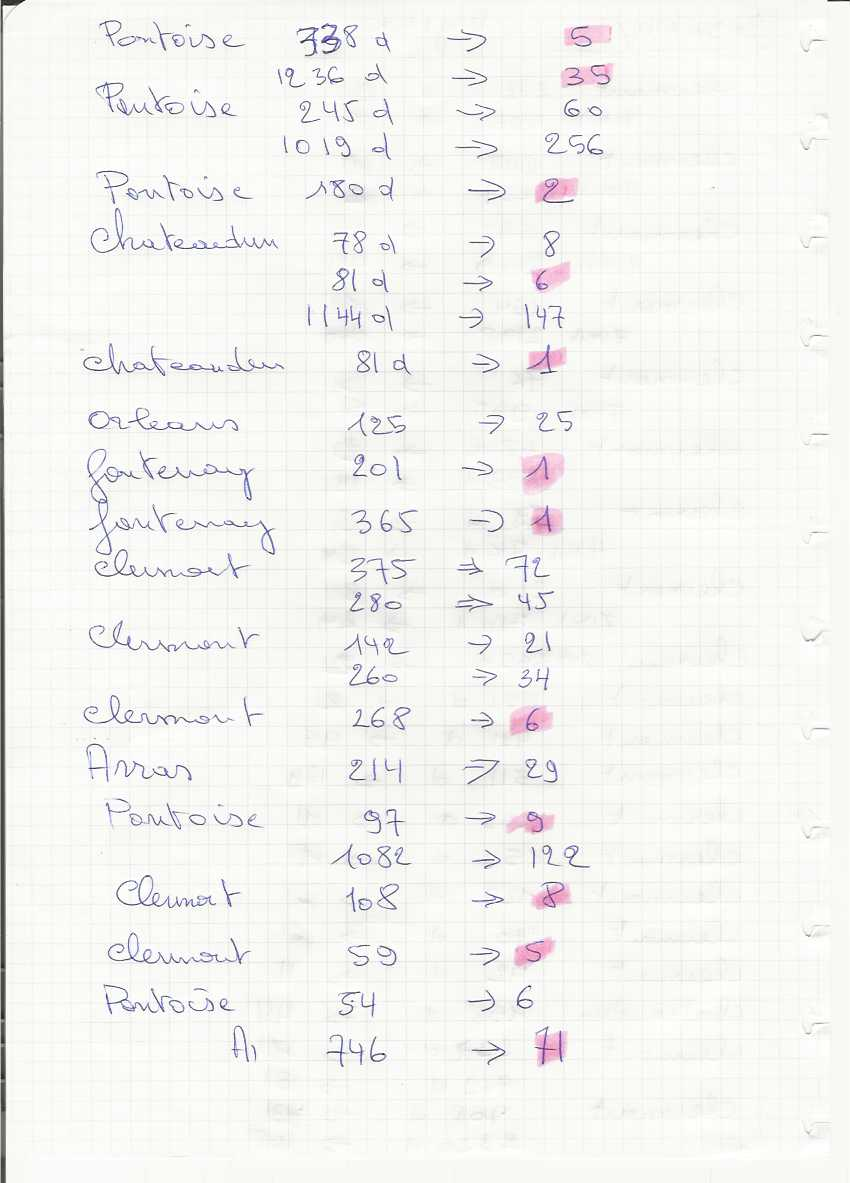 Pontoise 338 d → 5
1236 d → 35
Pontoise 245 d → 60
1019 d → 256
Pontoise 180 d → 2
Chateaudun 78 d → 8
81 d → 6
1144 d → 147
Chateaudun 81 d → 1
Orleans 125 → 25
fontenay 201 → 1
fontenay 365 → 1
Clermont 375 ⇒ 72
280 ⇒ 45
Clermont 142 → 21
260 → 34
Clermont 268 → 6
Arras 214 ⇒ 29
Pontoise 97 → 9
1082 → 122
Clermont 108 → 8
Clermont 59 → 5
Pontoise 54 → 6
A1 746 → 71